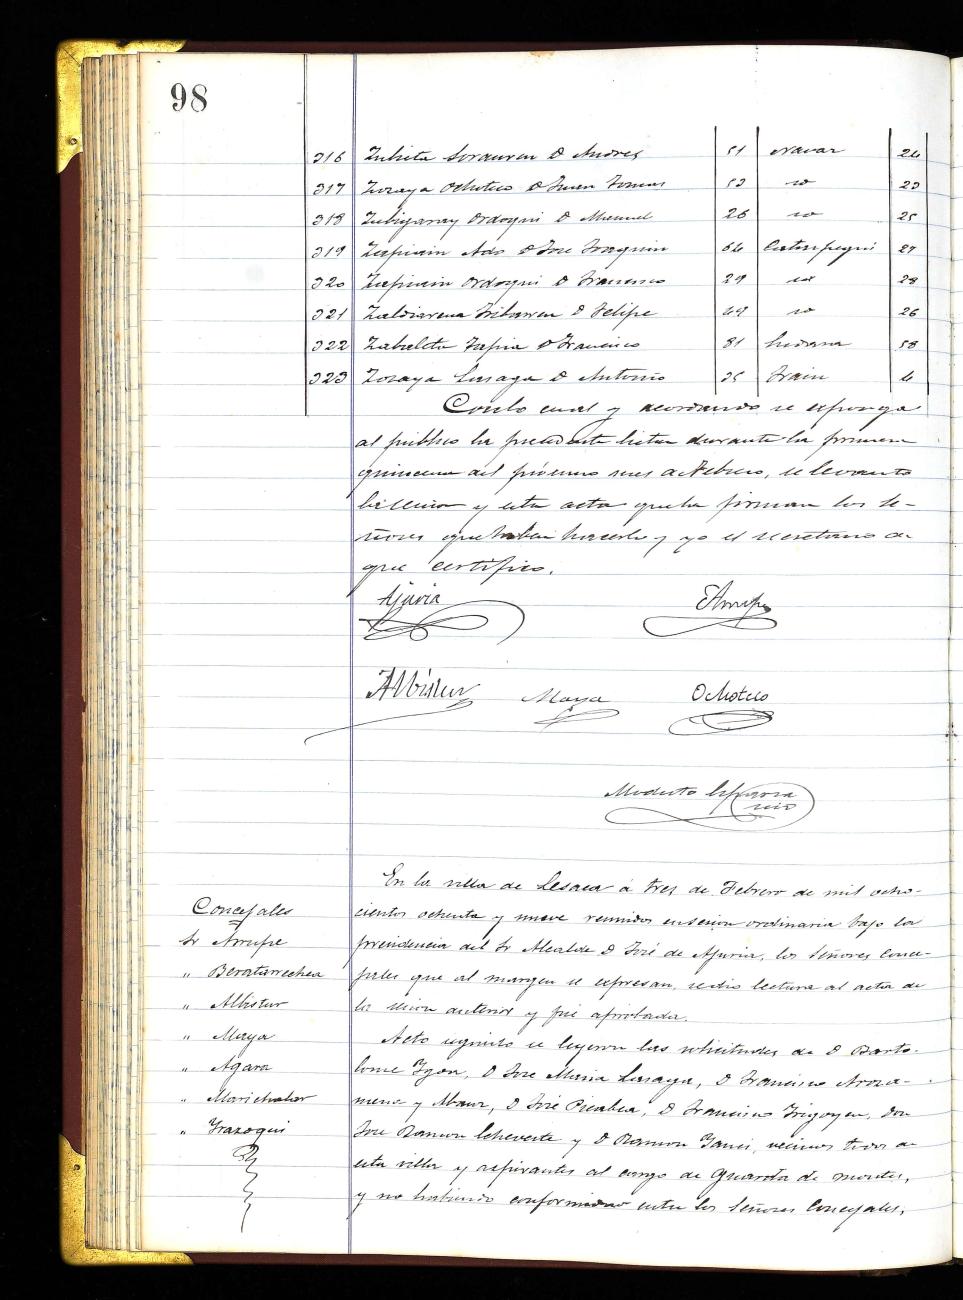 98
316 Zubieta Sorauren D Andres 51 Navaz 24
317 Zozaya Ochoteco D Juan Tomas 53 id 23
318 Zubigaray Ordoqui D Manuel 26 id 25
319 Zapiain Ado D Jose Joaquin 64 27
320 Zapiain Ordoqui D Francisco 29 id 28
321 Zaldiarena Iribarren D Felipe 49 id 26
322 Zabaleta Tapia D Francisco 81 58
323 Zozaya Lasaga D Antonio 35 4
Con lo cual y acordando se exponga
al público la precedente lista durante la primera
quincena del próximo mes de Febrero, se levanto
la sesion y esta acta que la firman los se-
ñores que saben hacerlo y yo el secretario de
que certifico.
Ajuria Arrupe
Albistur Maya Ochoteco
Modesto Esparza
srio
En la villa de Lesaca á tres de Febrero de mil ocho-
cientos ochenta y nueve reunidos en sesion ordinaria bajo la
presidencia del Sr Alcalde D José de Ajuria, los Señores Conce-
jales que al margen se espresan, se dió lectura al acta de
la sesion anterior y fué aprobada.
Concejales
Sr Arrupe
" Beratarrechea
" Albistur
" Maya
" Agara
" Marichalar
" Irazoqui
Acto seguido se leyeron las solicitudes de D Barto-
lome Igoa, D Jose Maria Lasaga, D Francisco Aroza-
mena y Abaur, D José Picabea, D Francisco Irigoyen, Don
José Ramon Echeverte y D Ramon Yanci, vecinos todos de
esta villa y aspirantes al cargo de Guarda de montes,
y no habiendo conformidad entre los Señores Concejales,